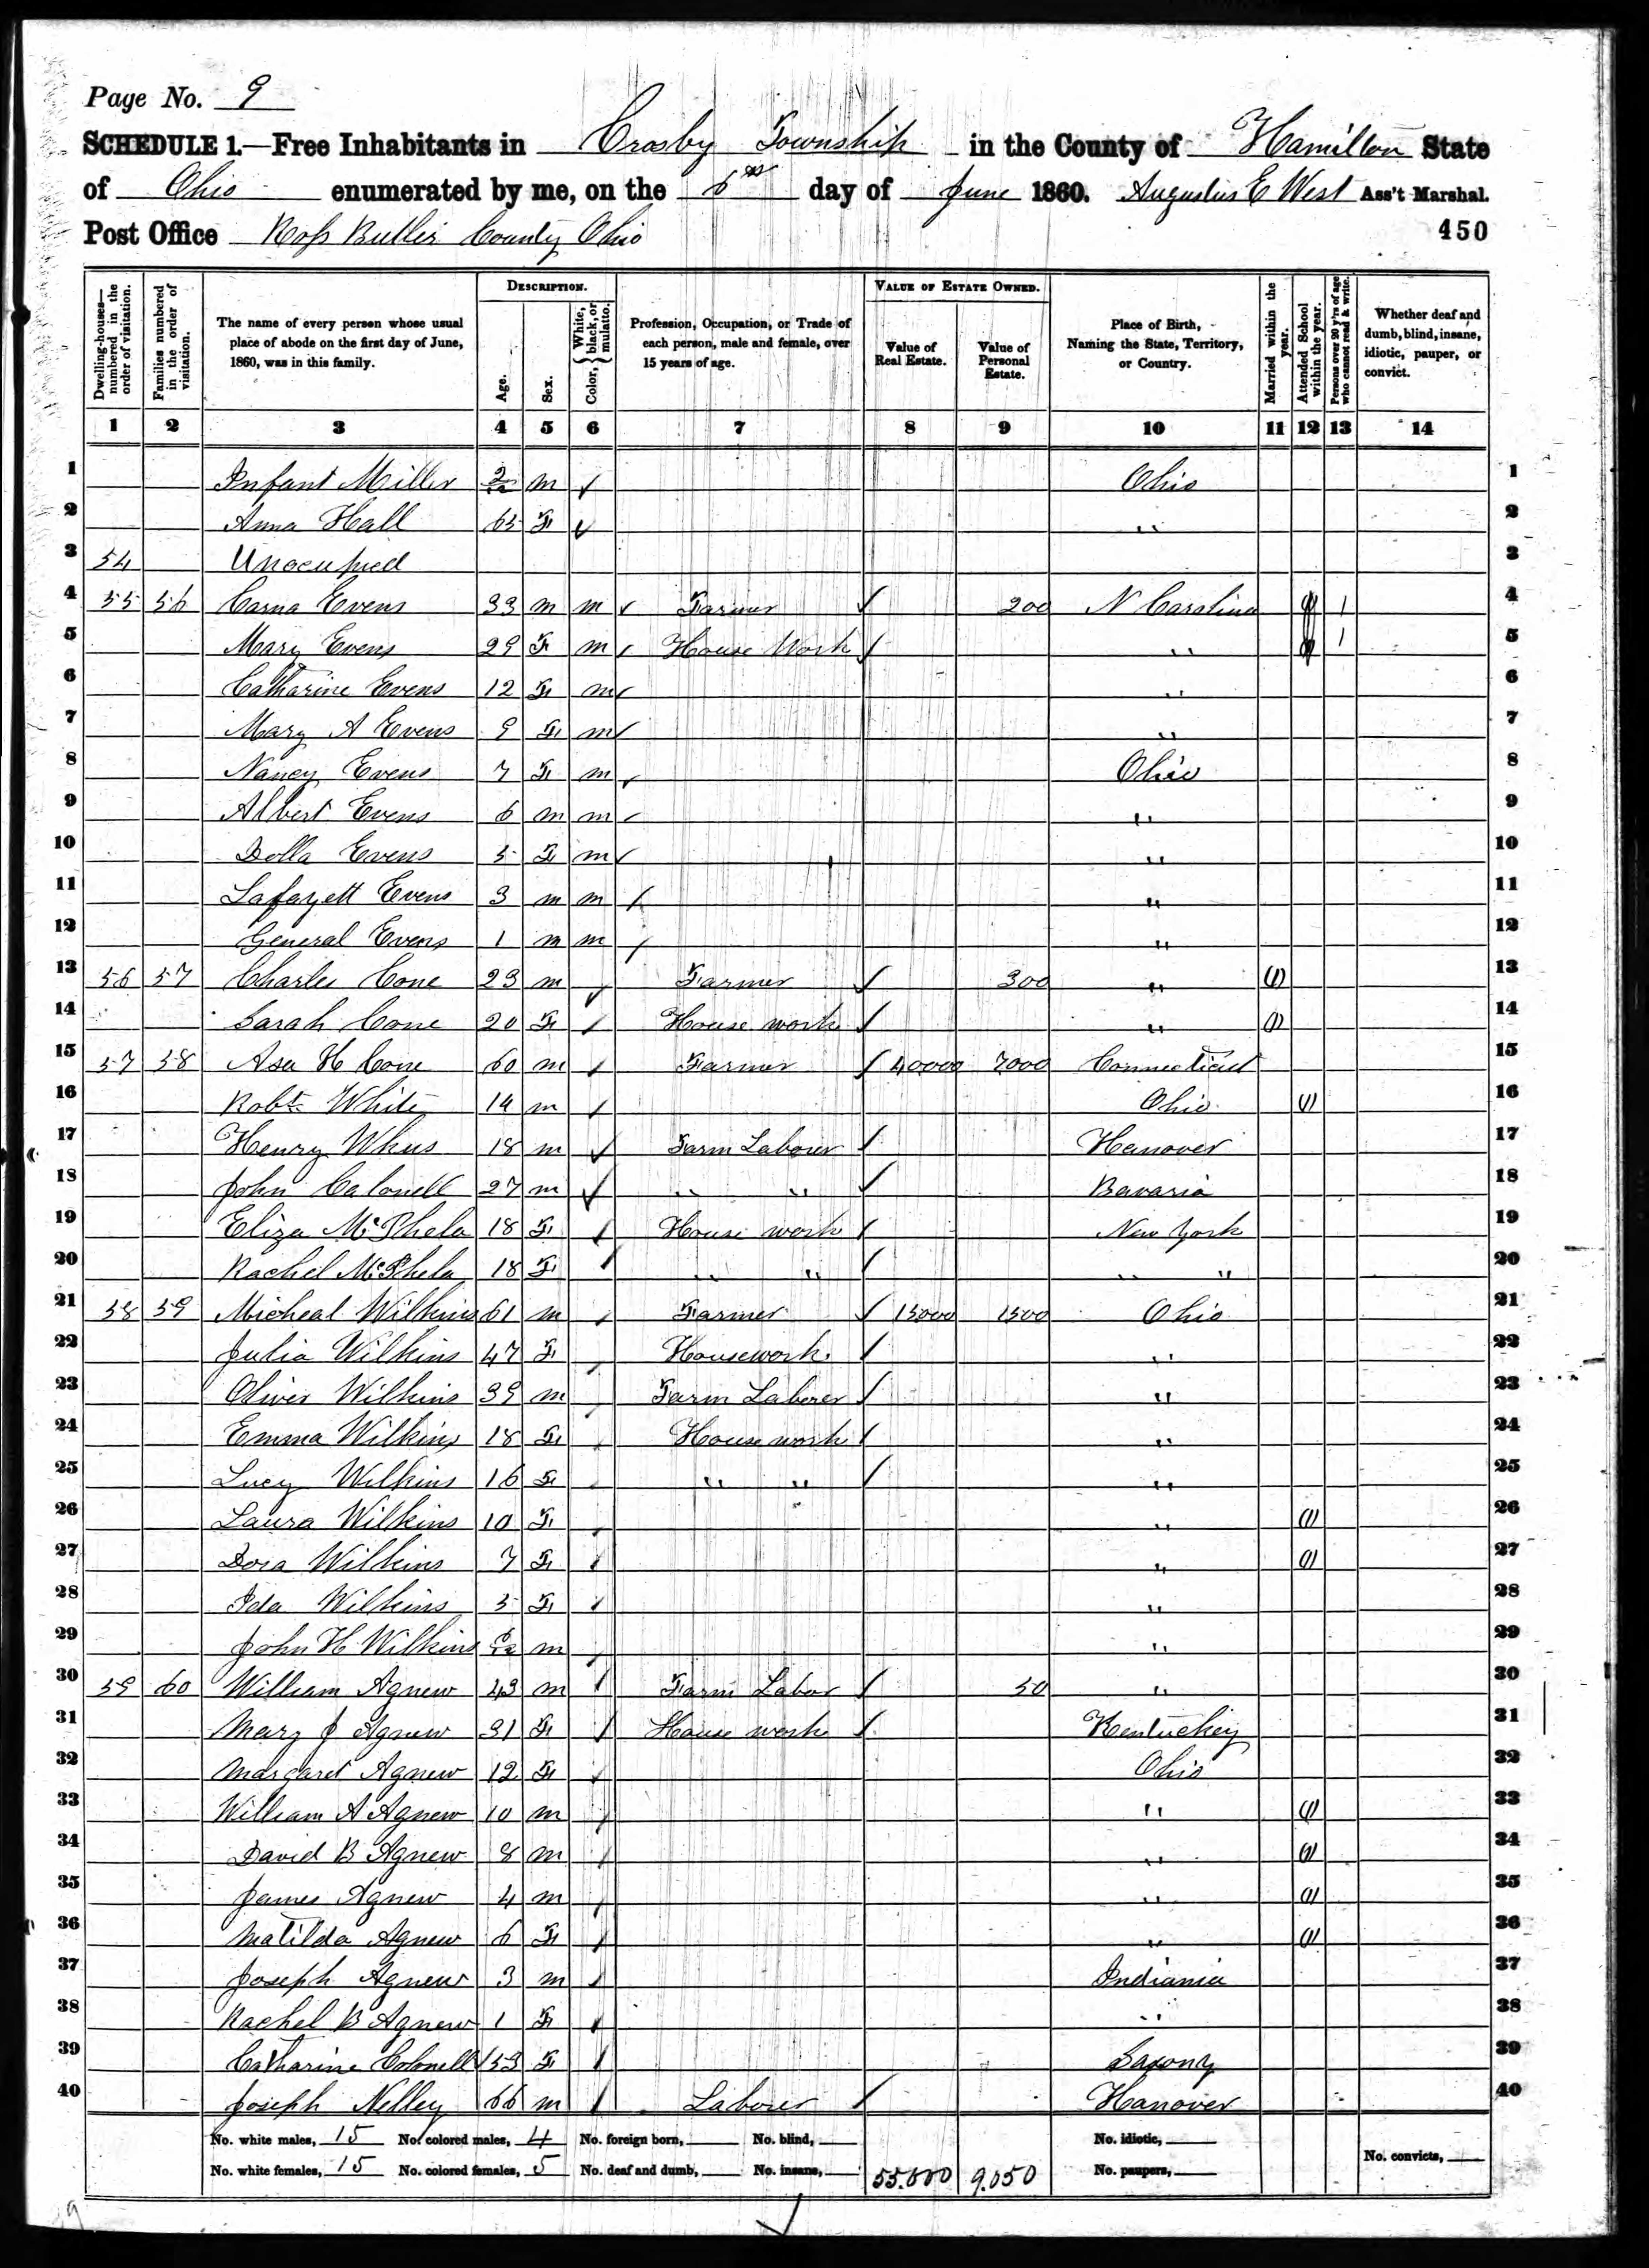 Page No. 9
SCHEDULE 1.—Free Inhabitants in Crosby Township in the County of Hamilton State
of Ohio enumerated by me, on the 6th day of June 1860. Augustus E West Ass't Marshal.
Post Office Ross Butler County Ohio 450
DESCRIPTION. VALUE OF ESTATE OWNED.
Dwelling-houses—numbered in the order of visitation. Families numbered in the order of visitation. The name of every person whose usual place of abode on the first day of June, 1860, was in this family. Age. Sex. Color, {White, black, or mulatto. Profession, Occupation, or Trade of each person, male and female, over 15 years of age. Value of Real Estate. Value of Personal Estate. Place of Birth, Naming the State, Territory, or Country. Married within the year. Attended School within the year. Persons over 20 y'rs of age who cannot read & write. Whether deaf and dumb, blind, insane, idiotic, pauper, or convict.
1 2 3 4 5 6 7 8 9 10 11 12 13 14
1 Infant Miller 2/12 m Ohio 1
2 Anna Hall 65 F " 2
3 54 Unocupied 3
4 55 56 Carna Evens 33 m m Farmer 200 N Carolina 1 4
5 Mary Evens 29 F m House Work " 1 5
6 Catharine Evens 12 F m " 6
7 Mary A Evens 9 F m " 7
8 Nancy Evens 7 F m Ohio 8
9 Albert Evens 6 m m " 9
10 Dolla Evens 5 F m " 10
11 Lafayett Evens 3 m m " 11
12 General Evens 1 m m " 12
13 56 57 Charles Cone 23 m Farmer 300 " (1) 13
14 Sarah Cone 20 F House work " (1) 14
15 57 58 Asa H Cone 60 m Farmer 40000 7000 Connecticut 15
16 Robt White 14 m Ohio (1) 16
17 Henry Whus 18 m Farm Laborer Hanover 17
18 John Calonell 27 m " " Bavaria 18
19 Eliza McPhela 18 F House work New York 19
20 Rachel McPhela 18 F " " " " 20
21 58 59 Micheal Wilkins 61 m Farmer 15000 1500 Ohio 21
22 Julia Wilkins 47 F Housework " 22
23 Oliver Wilkins 39 m Farm Laborer " 23
24 Emma Wilkins 18 F House work " 24
25 Lucy Wilkins 16 F " " " 25
26 Laura Wilkins 10 F " (1) 26
27 Dora Wilkins 7 F " (1) 27
28 Ida Wilkins 5 F " 28
29 John H Wilkins m " 29
30 59 60 William Agnew 43 m Farm Labor 50 " 30
31 Mary J Agnew 31 F House work Kentuckey 31
32 Margaret Agnew 12 F Ohio 32
33 William A Agnew 10 m " (1) 33
34 David B Agnew 8 m " (1) 34
35 James Agnew 4 m " (1) 35
36 Matilda Agnew 6 F " (1) 36
37 Joseph Agnew 3 m Indiania 37
38 Rachel B Agnew 1 F " 38
39 Catharine Colonell 53 F Saxony 39
40 Joseph Nelley 66 m Laborer Hanover 40
No. white males, 15 No. colored males, 4 No. foreign born, No. blind, No. idiotic,
No. white females, 15 No. colored females, 5 No. deaf and dumb, No. insane, 55.000 9.050 No. paupers, No. convicts,